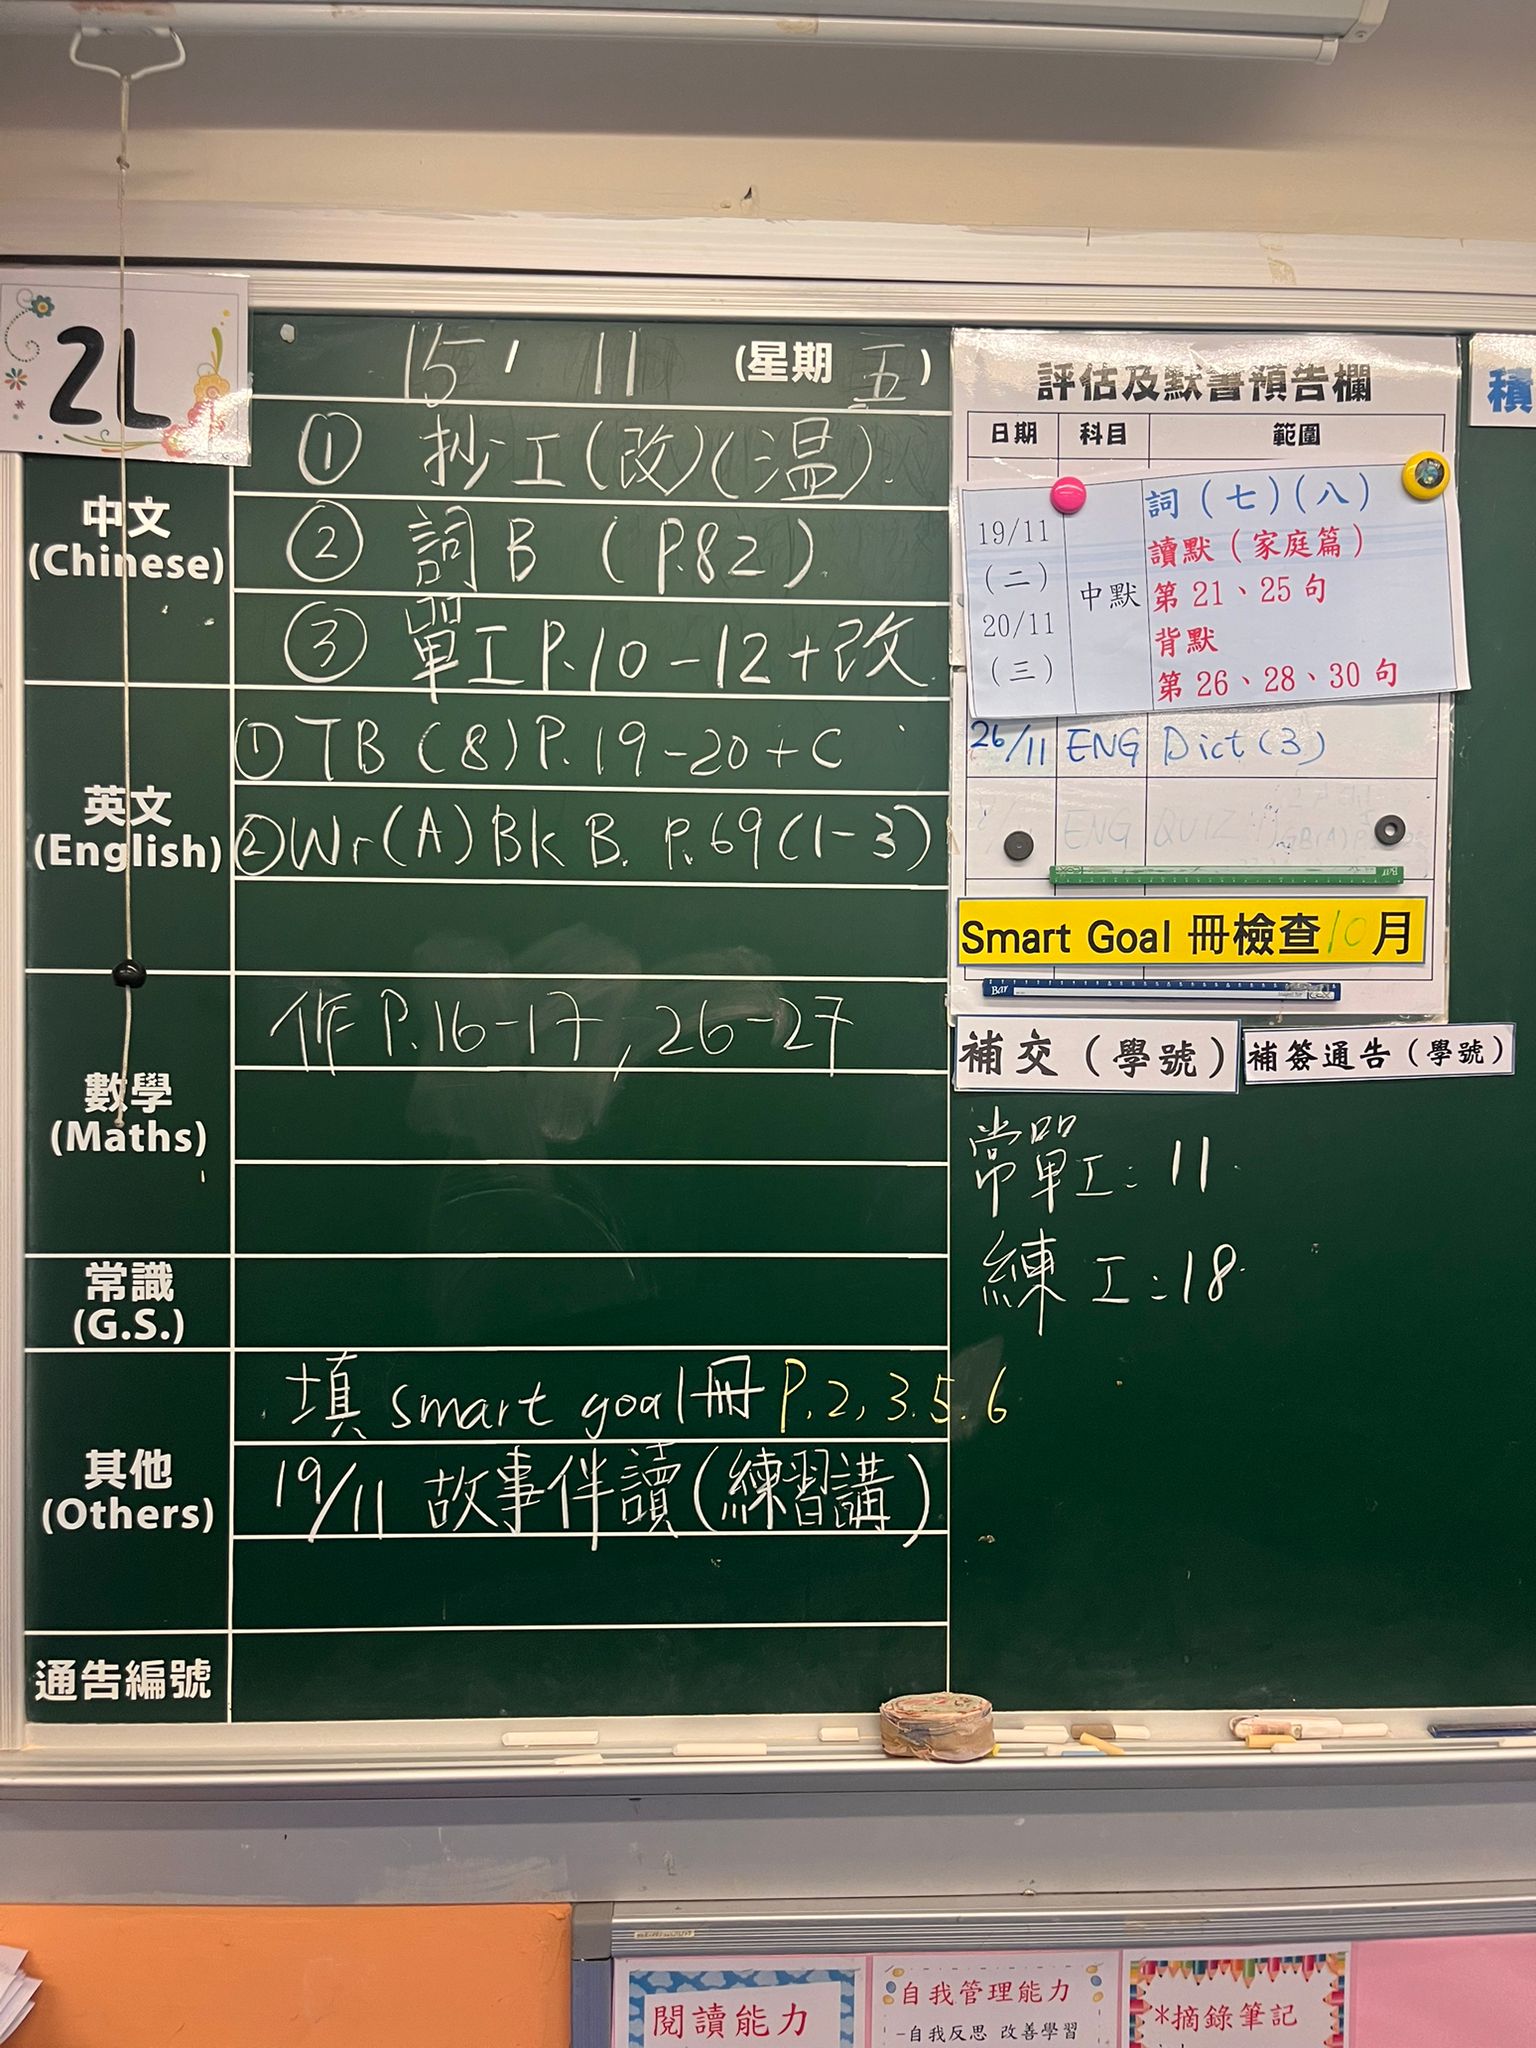 2L
15 / 11 (星期 五)
中文
(Chinese)
① 抄工(改)(溫).
② 詞B (P.82).
③ 單工P.10-12+改
英文
(English)
① TB (8) P.19-20+C
② Wr(A) Bk B. P.69(1-3)
數學
(Maths)
作P.16-17, 26-27
常識
(G.S.)
其他
(Others)
填 smart goal冊 P.2, 3.5.6
19/11 故事伴讀(練習講)
通告編號
評估及默書預告欄
日期 科目 範圍
19/11
(二)
20/11
(三)
中默
詞(七)(八)
讀默(家庭篇)
第 21、25 句
背默
第 26、28、30 句
26/11 ENG Dict(3)
ENG QUIZ
Smart Goal 冊檢查10月
補交(學號)
補簽通告(學號)
常單工: 11
練工: 18
積
閱讀能力
自我管理能力
-自我反思 改善學習
*摘錄筆記